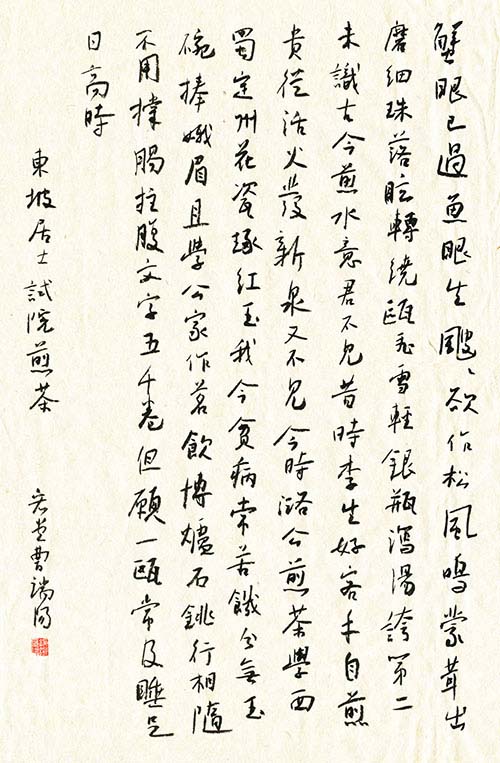 蟹眼已過魚眼生颼〻欲作松風鳴蒙茸出
磨細珠落眩轉繞甌飛雪輕銀瓶瀉湯誇第二
未識古今煎水意君不見昔時李生好客手自煎
貴從活火發新泉又不見今時潞公煎茶學西
蜀定州花瓷琢紅玉我今貧病常苦饑分無玉
碗捧娥眉且學公家作茗飲塼爐石銚行相隨
不用撐腸拄腹文字五千卷但願一甌常及睡足
日高時
東坡居士試院煎茶
曹端